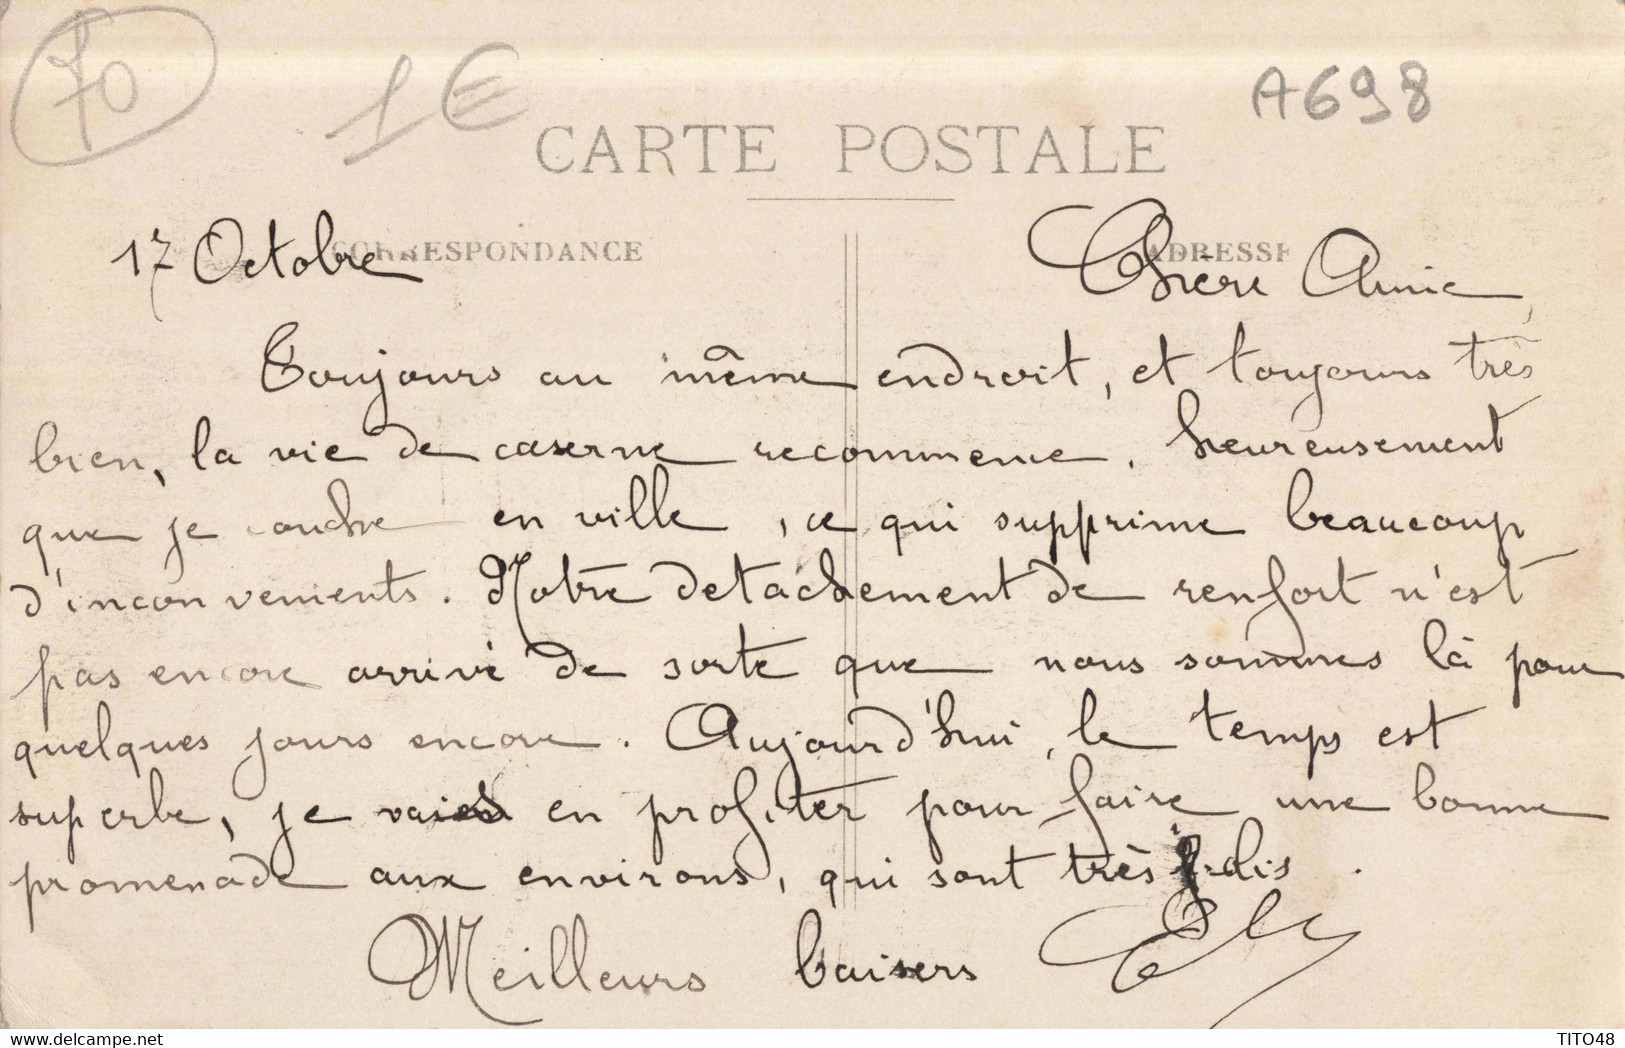 70
1€
A698
CARTE POSTALE
CORRESPONDANCE
ADRESSE
17 Octobre
Chère Annie,
Toujours au même endroit, et toujours très
bien, la vie de caserne recommence. heureusement
que je couche en ville, ce qui supprime beaucoup
d'inconvenients. Notre detachement de renfort n'est
pas encore arrivé de sorte que nous sommes là pour
quelques jours encore. Aujourd'hui, le temps est
superbe, je vais en profiter pour faire une bonne
promenade aux environs, qui sont très jolis.
Meilleurs baisers
https://www.delcampe.net
TITO48